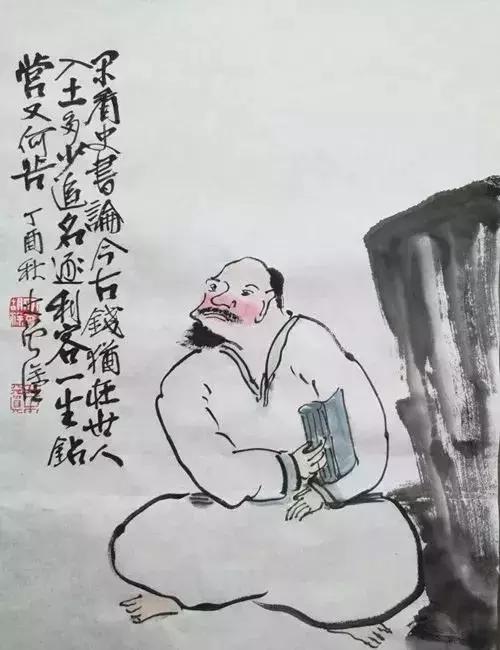 闲看史書論今古錢猶在世人
入土多少追名逐利客一生鉆
营又何苦 丁酉秋